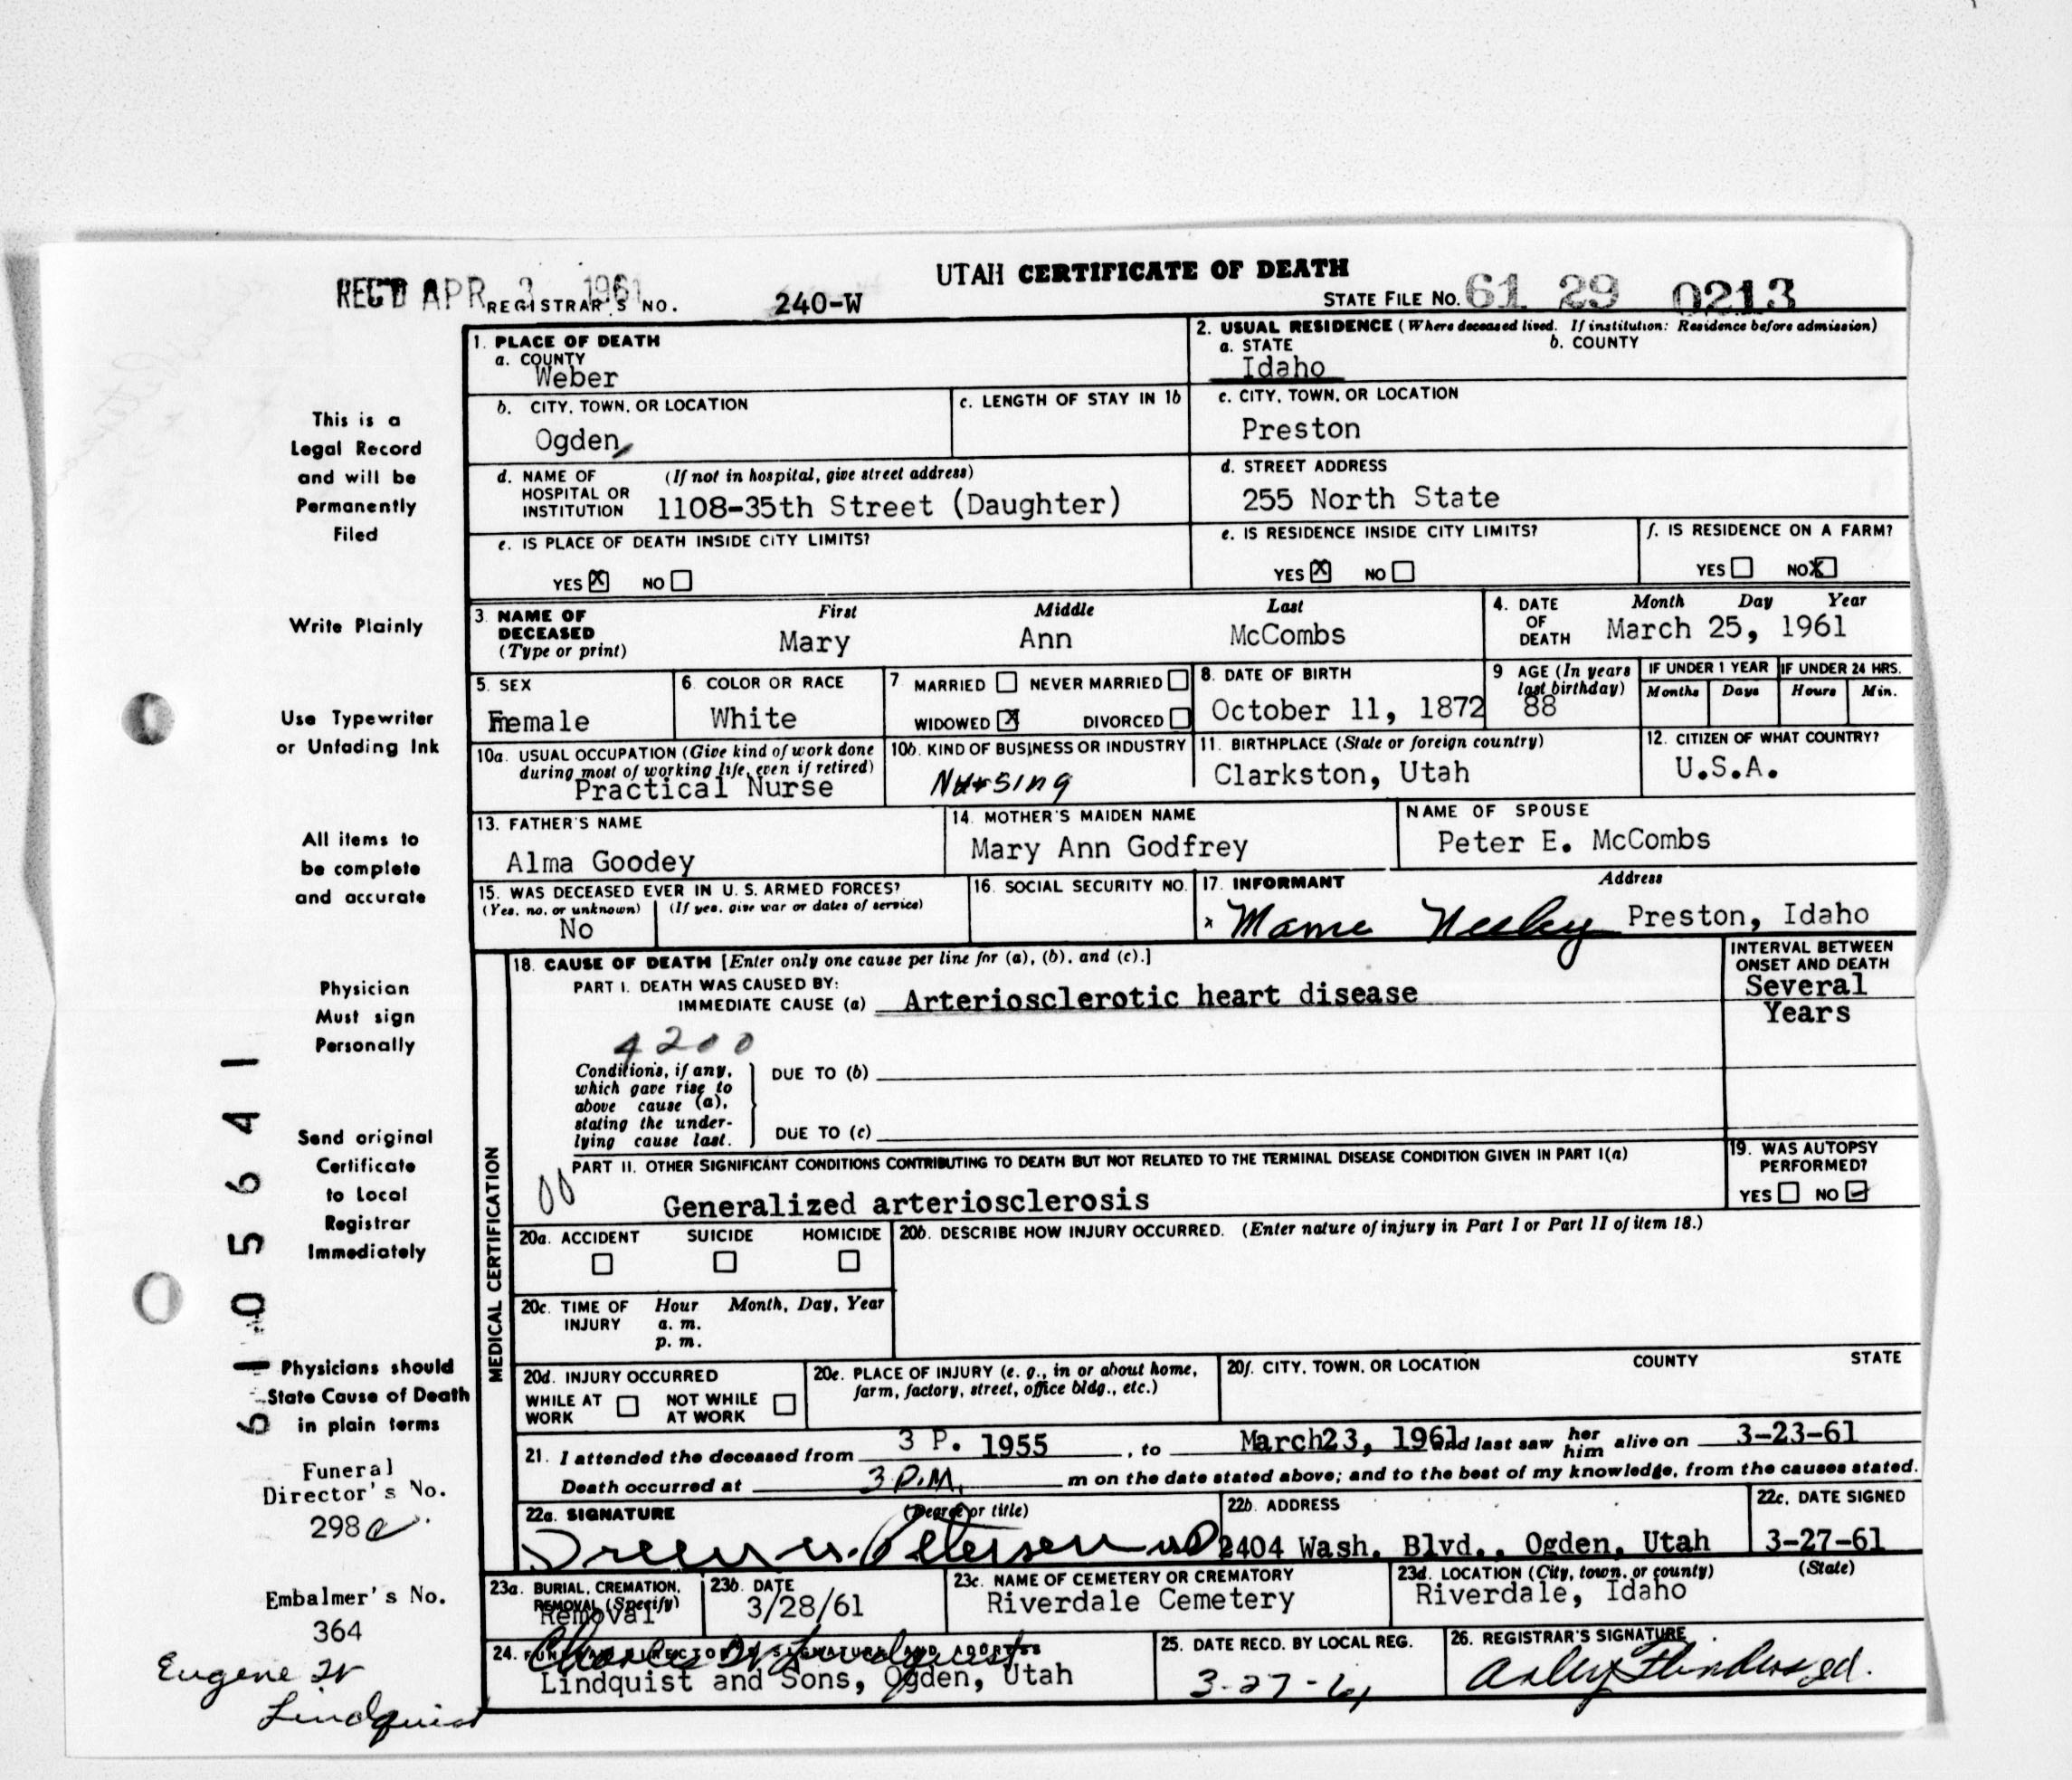 UTAH CERTIFICATE OF DEATH
REC'D APR 3 1961 REGISTRAR'S NO. 240-W STATE FILE NO. 61 29 0213
1. PLACE OF DEATH
a. COUNTY
Weber
2. USUAL RESIDENCE (Where deceased lived. If institution: Residence before admission)
a. STATE b. COUNTY
Idaho
b. CITY, TOWN, OR LOCATION
Ogden,
c. LENGTH OF STAY IN 1b
c. CITY, TOWN, OR LOCATION
Preston
d. NAME OF HOSPITAL OR INSTITUTION (If not in hospital, give street address)
1108-35th Street (Daughter)
d. STREET ADDRESS
255 North State
e. IS PLACE OF DEATH INSIDE CITY LIMITS?
YES X NO
e. IS RESIDENCE INSIDE CITY LIMITS?
YES X NO
f. IS RESIDENCE ON A FARM?
YES NO X
3. NAME OF DECEASED (Type or print)
First Middle Last
Mary Ann McCombs
4. DATE OF DEATH
Month Day Year
March 25, 1961
5. SEX
Female
6. COLOR OR RACE
White
7 MARRIED NEVER MARRIED
WIDOWED X DIVORCED
8. DATE OF BIRTH
October 11, 1872
9 AGE (In years last birthday)
88
IF UNDER 1 YEAR
Months Days
IF UNDER 24 HRS.
Hours Min.
10a. USUAL OCCUPATION (Give kind of work done during most of working life, even if retired)
Practical Nurse
10b. KIND OF BUSINESS OR INDUSTRY
Nursing
11. BIRTHPLACE (State or foreign country)
Clarkston, Utah
12. CITIZEN OF WHAT COUNTRY?
U.S.A.
13. FATHER'S NAME
Alma Goodey
14. MOTHER'S MAIDEN NAME
Mary Ann Godfrey
NAME OF SPOUSE
Peter E. McCombs
15. WAS DECEASED EVER IN U. S. ARMED FORCES?
(Yes, no, or unknown) (If yes, give war or dates of service)
No
16. SOCIAL SECURITY NO.
17. INFORMANT Address
x Mame Neeley Preston, Idaho
MEDICAL CERTIFICATION
18. CAUSE OF DEATH [Enter only one cause per line for (a), (b), and (c).]
PART I. DEATH WAS CAUSED BY:
IMMEDIATE CAUSE (a) Arteriosclerotic heart disease
INTERVAL BETWEEN ONSET AND DEATH
Several
Years
4200
Conditions, if any, which gave rise to above cause (a), stating the underlying cause last.
DUE TO (b)
DUE TO (c)
PART II. OTHER SIGNIFICANT CONDITIONS CONTRIBUTING TO DEATH BUT NOT RELATED TO THE TERMINAL DISEASE CONDITION GIVEN IN PART I(a)
00
Generalized arteriosclerosis
19. WAS AUTOPSY PERFORMED?
YES NO
20a. ACCIDENT SUICIDE HOMICIDE
20b. DESCRIBE HOW INJURY OCCURRED. (Enter nature of injury in Part I or Part II of item 18.)
20c. TIME OF INJURY Hour Month, Day, Year
a. m.
p. m.
20d. INJURY OCCURRED
WHILE AT WORK NOT WHILE AT WORK
20e. PLACE OF INJURY (e. g., in or about home, farm, factory, street, office bldg., etc.)
20f. CITY, TOWN, OR LOCATION COUNTY STATE
21. I attended the deceased from 3 P. 1955, to March23, 1961 and last saw her him alive on 3-23-61
Death occurred at 3 P.M. m on the date stated above; and to the best of my knowledge, from the causes stated.
22a. SIGNATURE (Degree or title)
Petersen MD
22b. ADDRESS
2404 Wash. Blvd., Ogden, Utah
22c. DATE SIGNED
3-27-61
23a. BURIAL, CREMATION, REMOVAL (Specify)
Removal
23b. DATE
3/28/61
23c. NAME OF CEMETERY OR CREMATORY
Riverdale Cemetery
23d. LOCATION (City, town, or county) (State)
Riverdale, Idaho
24. FUNERAL DIRECTOR'S SIGNATURE AND ADDRESS
Charles W Lindquist
Lindquist and Sons, Ogden, Utah
25. DATE RECD. BY LOCAL REG.
3-27-61
26. REGISTRAR'S SIGNATURE
This is a
Legal Record
and will be
Permanently
Filed
Write Plainly
Use Typewriter
or Unfading Ink
All items to
be complete
and accurate
Physician
Must sign
Personally
Send original
Certificate
to Local
Registrar
Immediately
Physicians should
State Cause of Death
in plain terms
Funeral
Director's No.
298
Embalmer's No.
364
Eugene W
Lindquist
61 105641